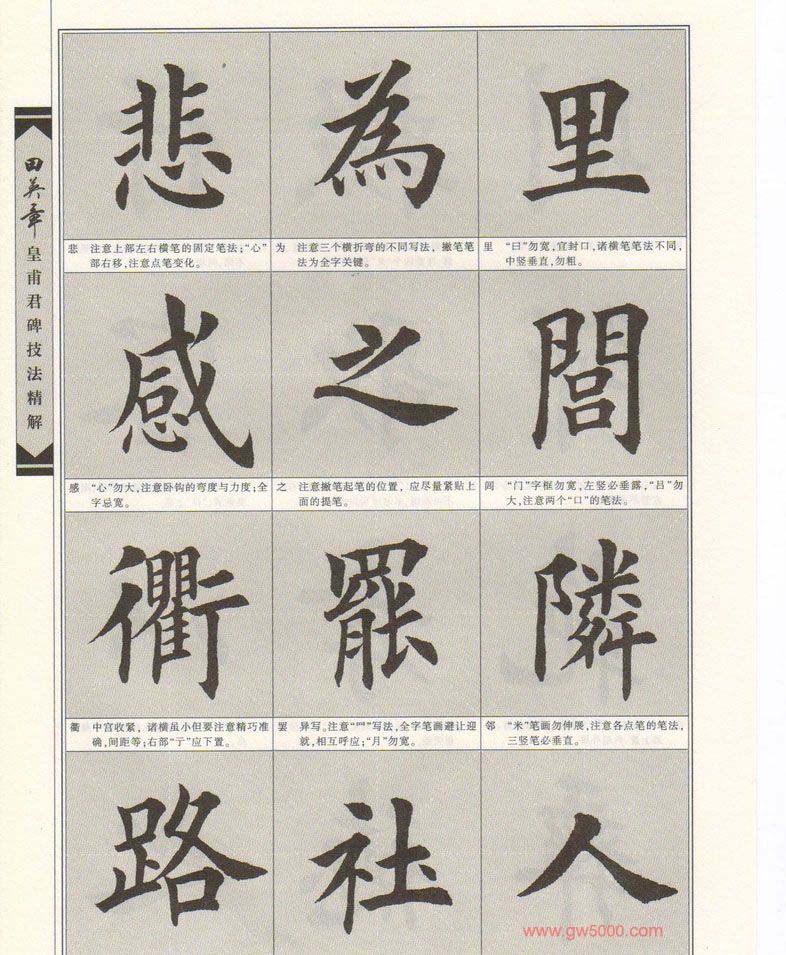 田英章
皇甫君碑技法精解
悲 為 里
悲 注意上部左右横笔的固定笔法；“心”
部右移，注意点笔变化。
为 注意三个横折弯的不同写法，撇笔笔
法为全字关键。
里 “曰”勿宽，宜封口，诸横笔笔法不同，
中竖垂直，勿粗。
感 之 閭
感 “心”勿大，注意卧钩的弯度与力度；全
字忌宽。
之 注意撇笔起笔的位置，应尽量紧贴上
面的提笔。
闾 “门”字框勿宽，左竖必垂露，“吕”勿
大，注意两个“口”的笔法。
衢 罷 隣
衢 中宫收紧，诸横虽小但要注意精巧准
确，间距等；右部“亍”应下置。
罢 异写。注意“罒”写法，全字笔画避让迎
就，相互呼应；“月”勿宽。
邻 “米”笔画勿伸展，注意各点笔的笔法，
三竖笔必垂直。
路 社 人
www.gw5000.com